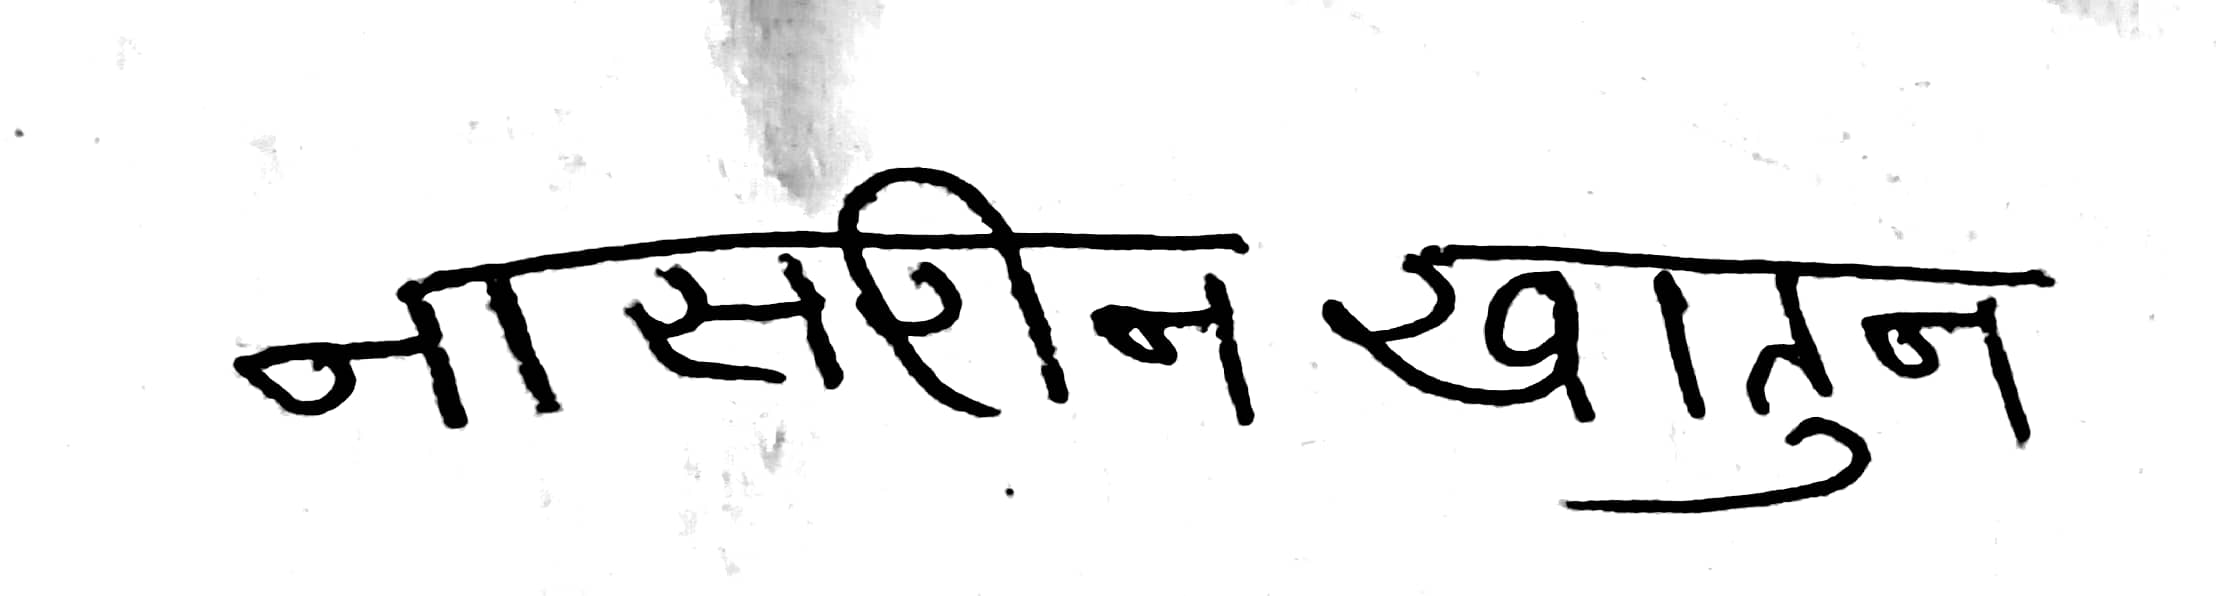 नासरीन खातुन